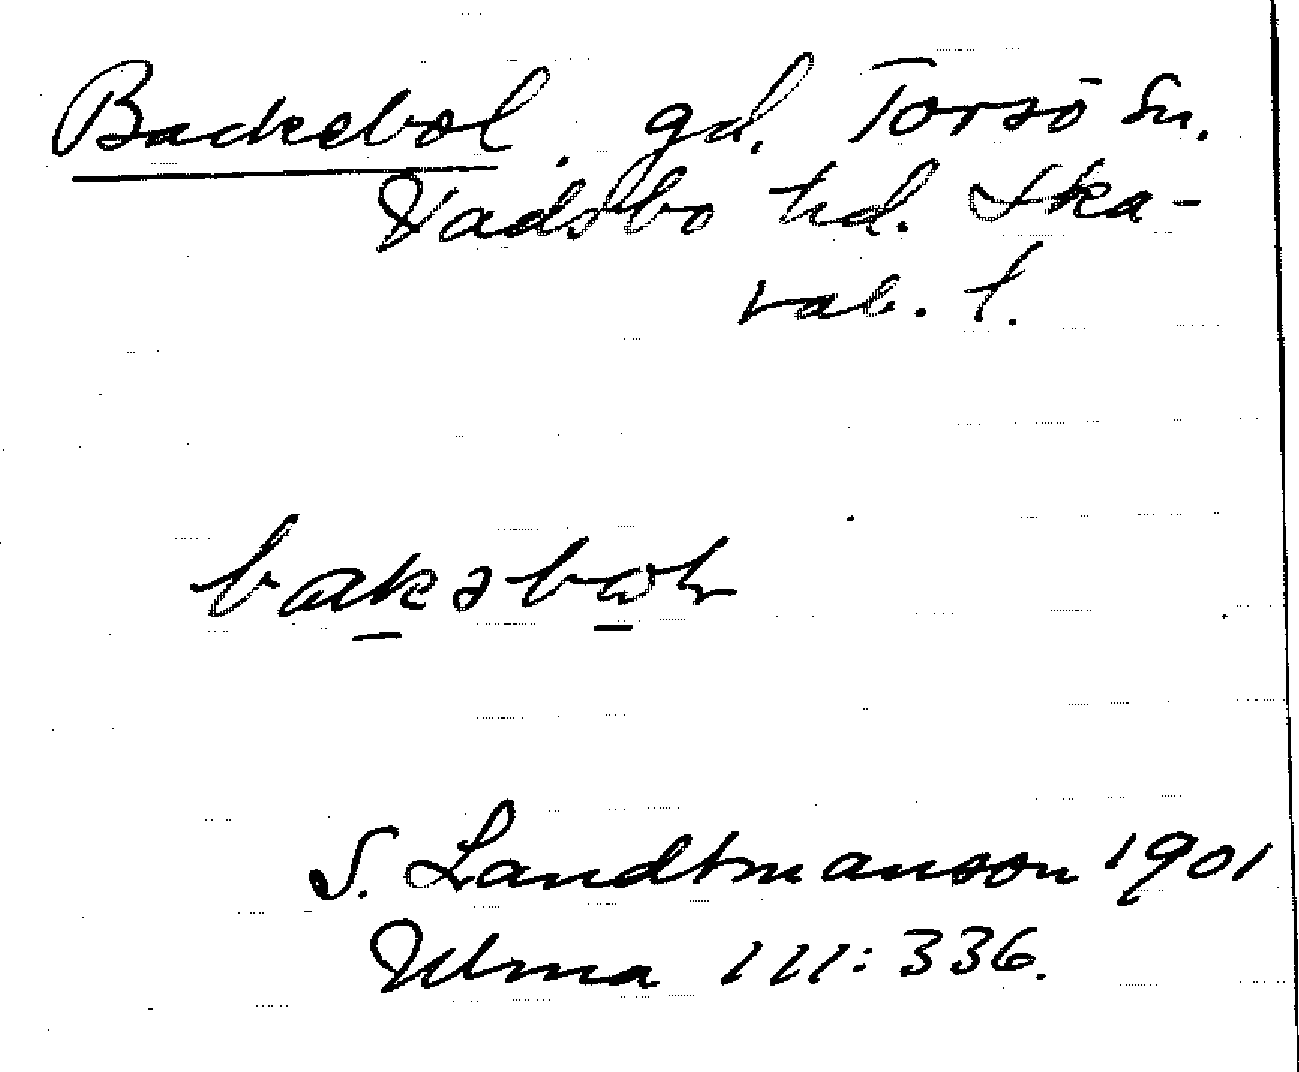 Backebol. gd. Torsö sn.
Vadsbo hd. Ska-
rab. l.
bakəbωl
S. Landtmanson 1901
Ulma 111:336.